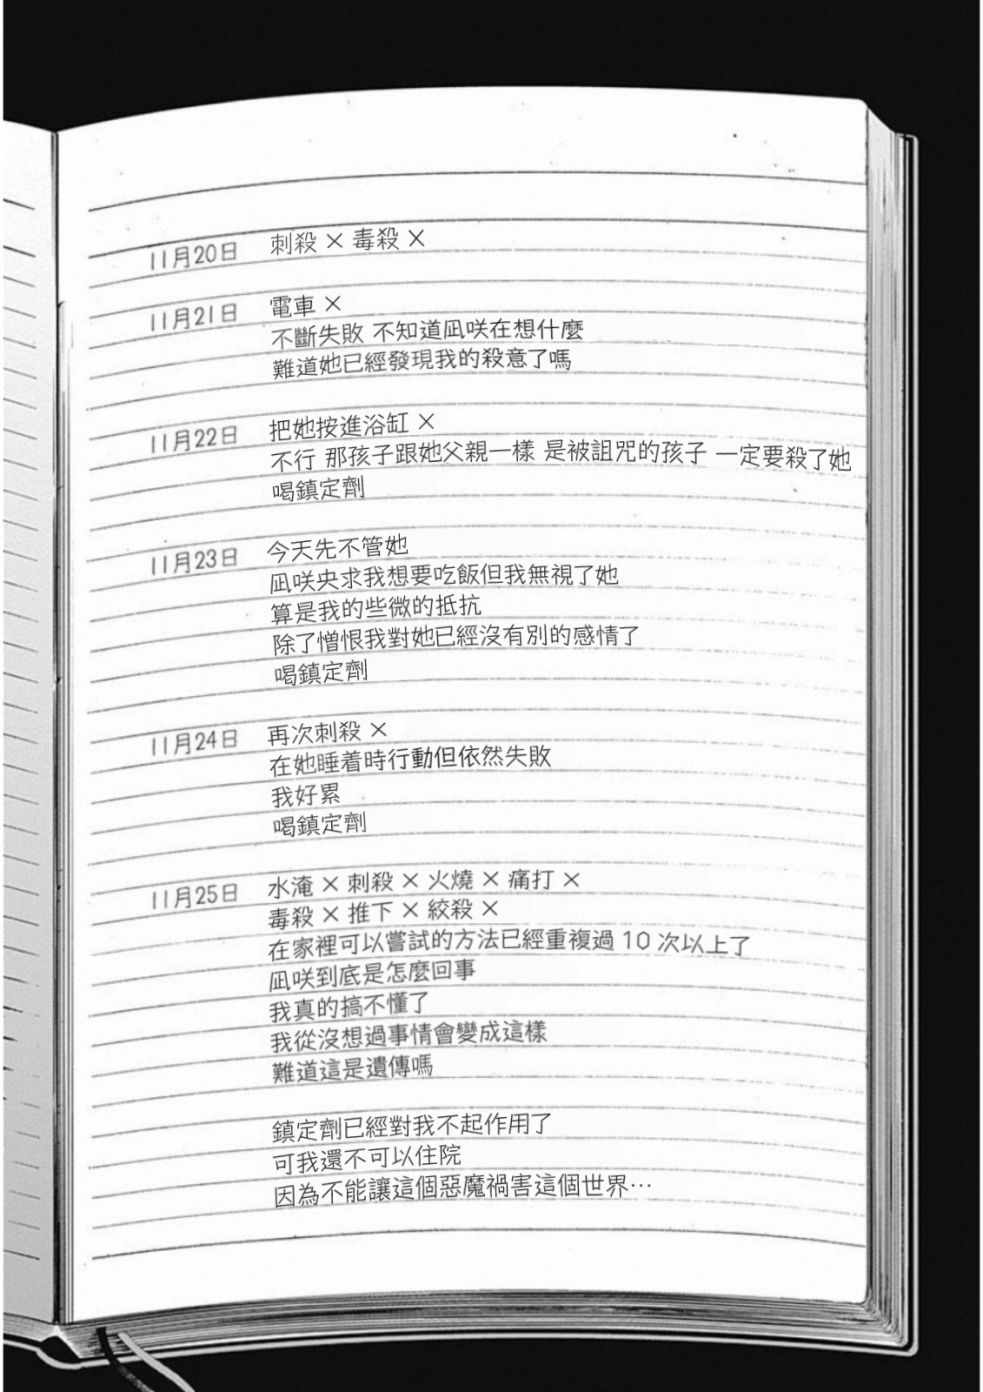 11月20日 刺殺 × 毒殺 ×
11月21日 電車 ×
不斷失敗 不知道凪咲在想什麼
難道她已經發現我的殺意了嗎
11月22日 把她按進浴缸 ×
不行 那孩子跟她父親一樣 是被詛咒的孩子 一定要殺了她
喝鎮定劑
11月23日 今天先不管她
凪咲央求我想要吃飯但我無視了她
算是我的些微的抵抗
除了憎恨我對她已經沒有別的感情了
喝鎮定劑
11月24日 再次刺殺 ×
在她睡着時行動但依然失敗
我好累
喝鎮定劑
11月25日 水淹 × 刺殺 × 火燒 × 痛打 ×
毒殺 × 推下 × 絞殺 ×
在家裡可以嘗試的方法已經重複過 10 次以上了
凪咲到底是怎麼回事
我真的搞不懂了
我從沒想過事情會變成這樣
難道這是遺傳嗎
鎮定劑已經對我不起作用了
可我還不可以住院
因為不能讓這個惡魔禍害這個世界…